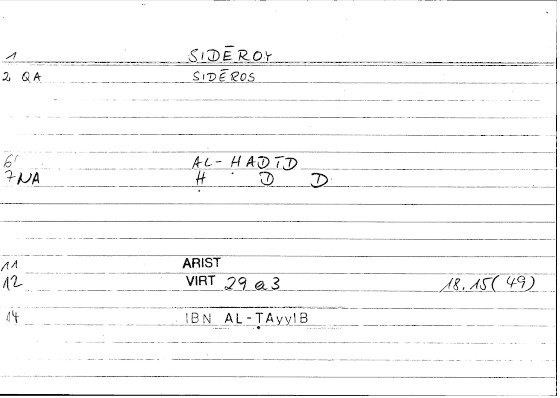 1 SIDĒROY
2 QA SIDĒROS
6 AL-ḤADĪD
7 NA Ḥ D D
11 ARIST
12 VIRT 29 a 3 18.15(49)
14 IBN AL-ṬAyyIB